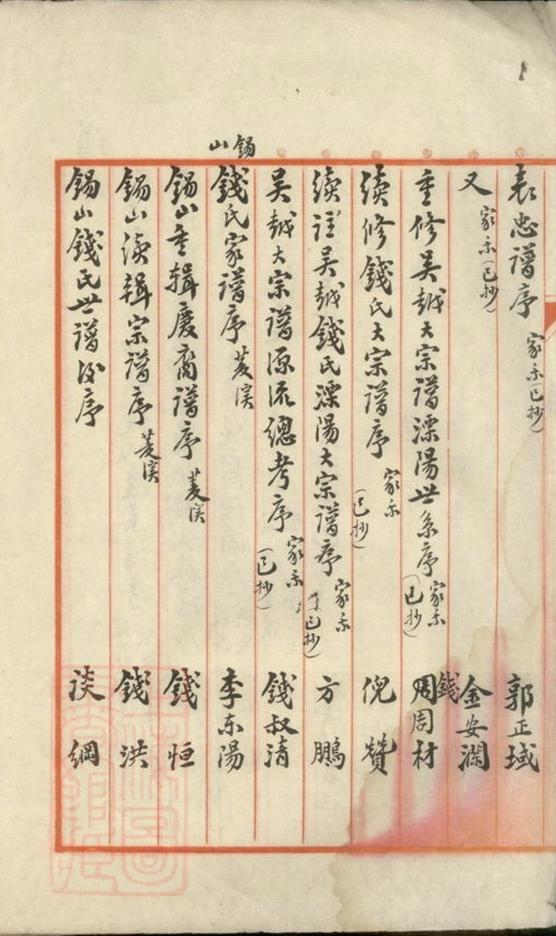 表忠譜序 家乘(已抄) 郭正域
又 家乘(已抄) 金安瀾
重修吳越大宗譜溧陽世系序 家乘(已抄) 錢周材
續修錢氏大宗譜序 家乘(已抄) 倪贊
續註吳越錢氏溧陽大宗譜序 家乘(已抄) 方鵬
吳越大宗譜源流總考序 家乘(已抄) 錢叔清
錫山錢氏家譜序 菱溪 李東陽
錫山重輯慶裔譜序 菱溪 錢恒
錫山續輯宗譜序 菱溪 錢洪
錫山錢氏世譜後序 談綱